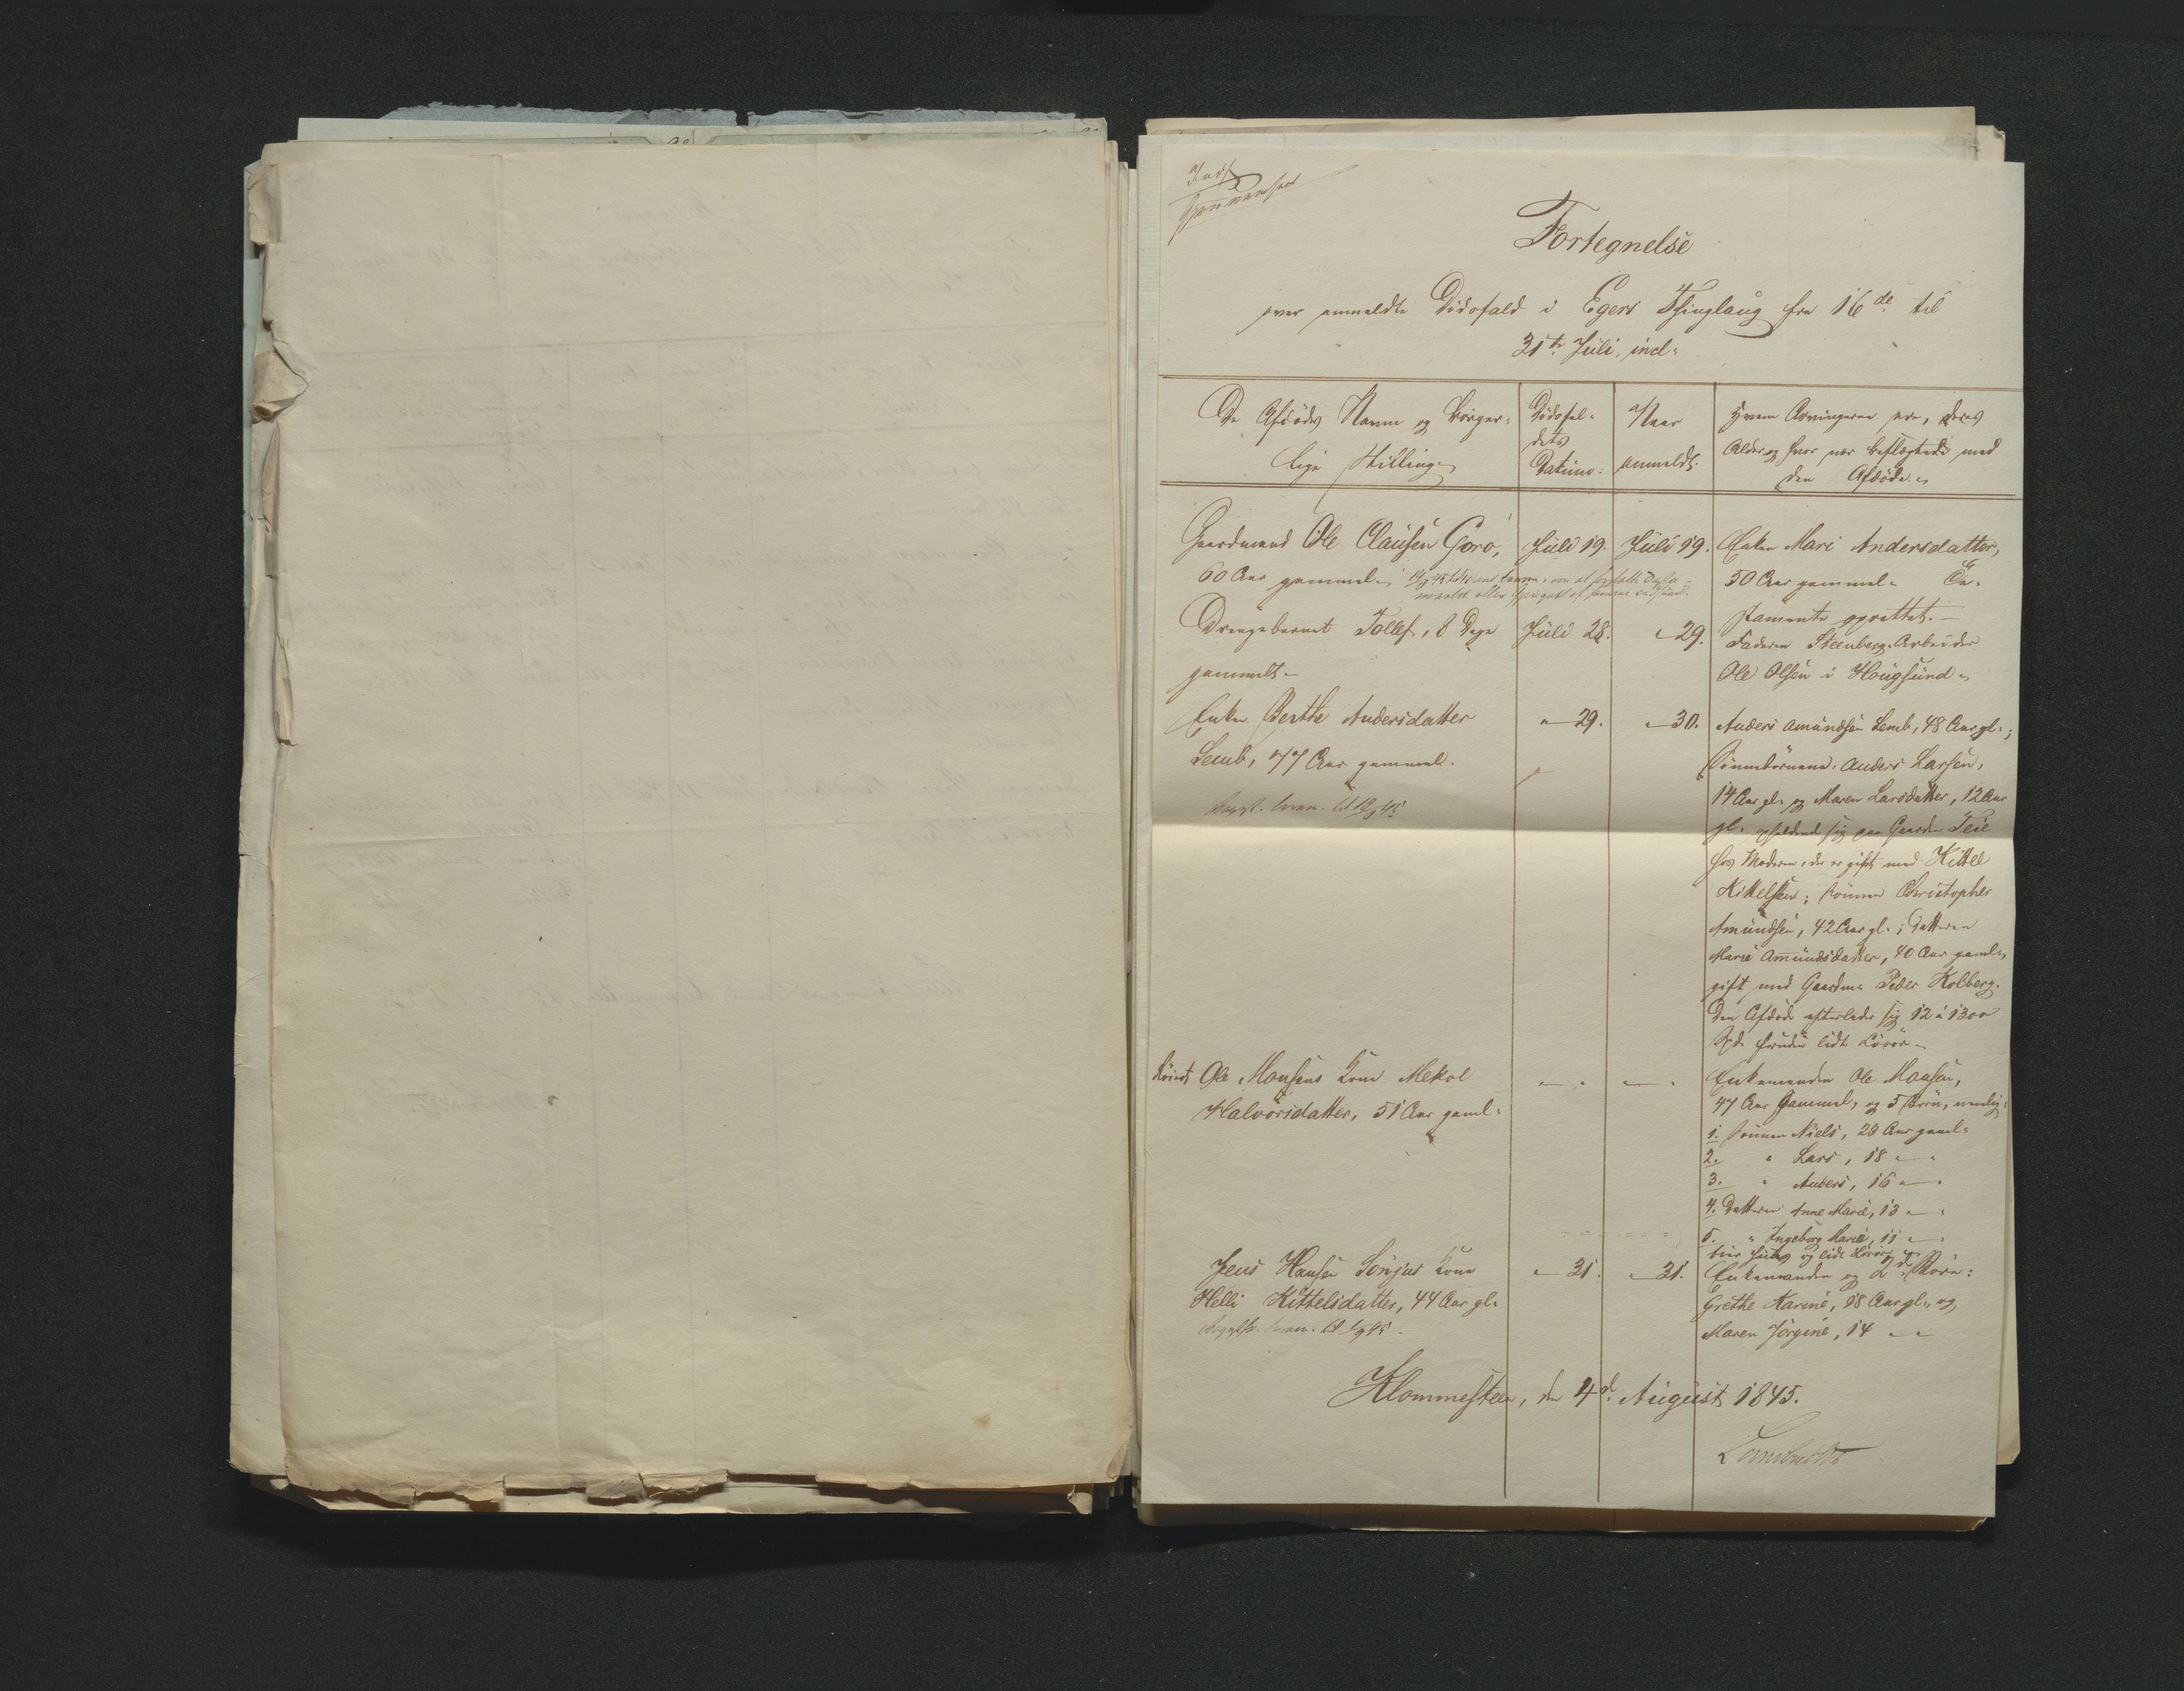 Fortegnelse
over anmeldte Dödsfald i Egers Thinglaug fra 16de til
31te Juli, incl:
De Afdödes Navn og borger-
lige Stilling
Dödsfal-
dets
Datum.
Naar
anmeldt.
Hvem Arvingerne ere, deres
Alder og hvor nær beslægtede med
den Afdöde.
Gaardmand Ole Clausen Goro, Juli 19. Juli 19. Enken Mari Andersdatter,
60 Aar gammel. 50 Aar gammel. Te-
stamente oprettet.
Drengebarnet Tollef, 8 Dage Juli 28. " 29. Faderen Steenberg. Arbeider
gammelt Ole Olsen i Hougsund
Enken Berthe Andersdatter " 29. " 30. Anders Amundsen Lemb, 48 Aar gl.;
Lemb, 77 Aar gammel. Sönnebörnene: Anders Larsen,
14 Aar gl. og Maren Larsdatter, 12 Aar
gl. opholdende sig paa Gaarden Teie
hos Moderen, der er gift med Kittel
Kittelsen; Sönnen Christopher
Amundsen, 42 Aar gl.; Datteren
Marie Amundsdatter, 40 Aar gaml.,
gift med Gaardm. Peder Kolberg.
Den Afdöde efterlader sig 12 à 1300
Spd. foruden lidt Lösöre
Ole Monsens Kone Mekol " " " " Enkemanden Ole Monsen,
Halvorsdatter, 51 Aar gaml: 47 Aar gammel, og 5 Börn, nemlig:
1. Sönnen Niels, 23 Aar gaml:
2. " Lars, 18 " "
3. " Anders, 16 " "
4. Datteren Anne Marie, 13 " "
5. " Ingeborg Marie, 11 " "
og lidt Lösöre
Jens Hansen Sonjus Kone " 31. " 31. Enkemanden og 2de Börn:
Helli Kittelsdatter, 44 Aar gl. Grethe Karine, 18 Aar gl., og
Maren Jörgine, 14 " "
Klommesteen, den 4de August 1845.